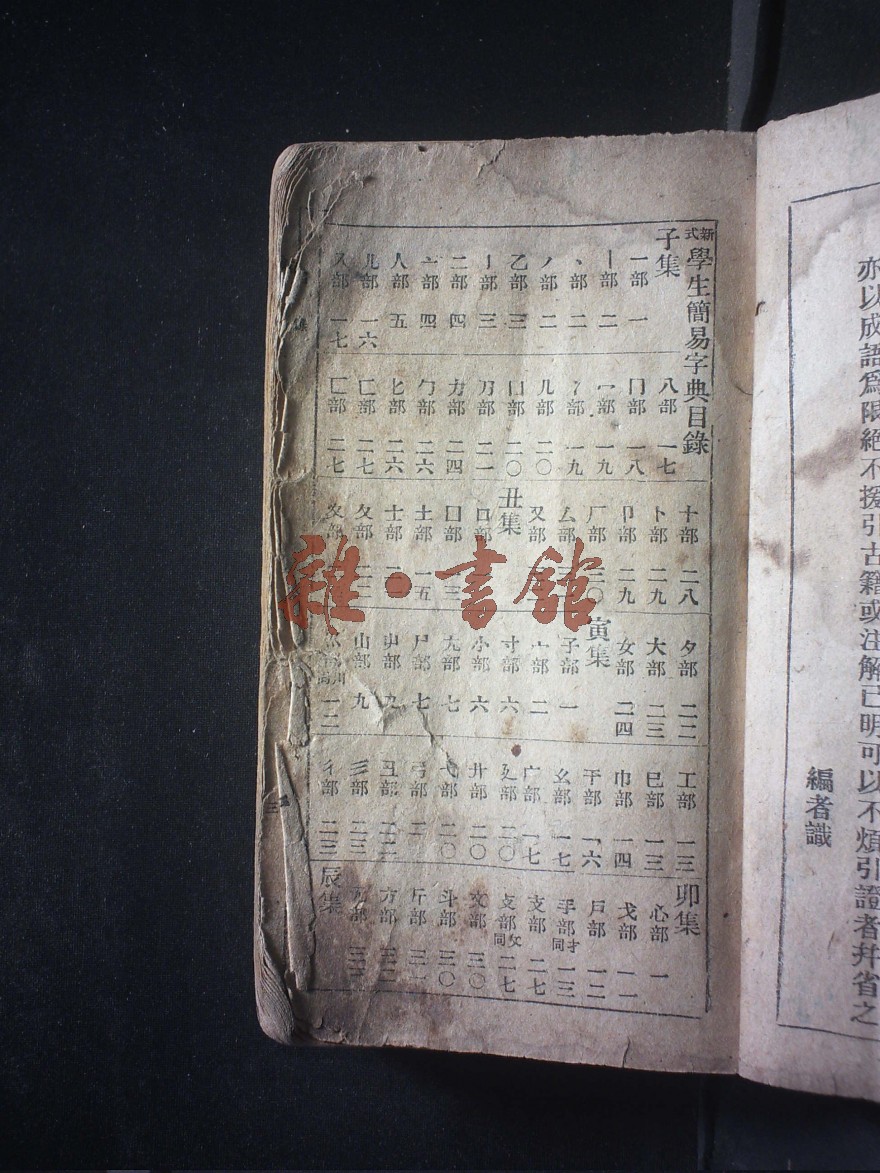 亦以成語爲限絕不援引古籍或注解已明可以不煩引證者幷省之
編者識
新式學生簡易字典目錄
子集
一部 一
丨部 二
丶部 二
丿部 二
乙部 三
亅部 三
二部 四
亠部 四
人部 五
儿部 一六
入部 一七
八部 一七
冂部 一八
冖部 一九
冫部 一九
几部 二〇
凵部 二〇
刀部 二一
力部 二四
勹部 二六
匕部 二六
匚部 二七
匸部 二七
十部 二八
卜部 二九
卩部 二九
厂部 三〇
厶部
又部
丑集
口部
囗部
土部 一五
士部
夂部
夊部
夕部 二二
大部 二三
女部 二四
寅集
子部 一
宀部 二
寸部 六
小部 六
尢部 七
尸部 七
屮部 九
山部 九
一二
工部 一三
巳部 一三
巾部 一四
干部 一六
幺部 一七
广部 一七
廴部 二〇
廾部 二〇
弋部 二〇
弓部
彐部 二二
彡部 二三
彳部 二三
卯集
心部 一
戈部 一一
戶部 一二
手部才同 一三
支部 二七
攴部攵同 二七
文部 三〇
斗部 三〇
斤部 三一
方部 三二
无部 三二
辰集
雜·書館